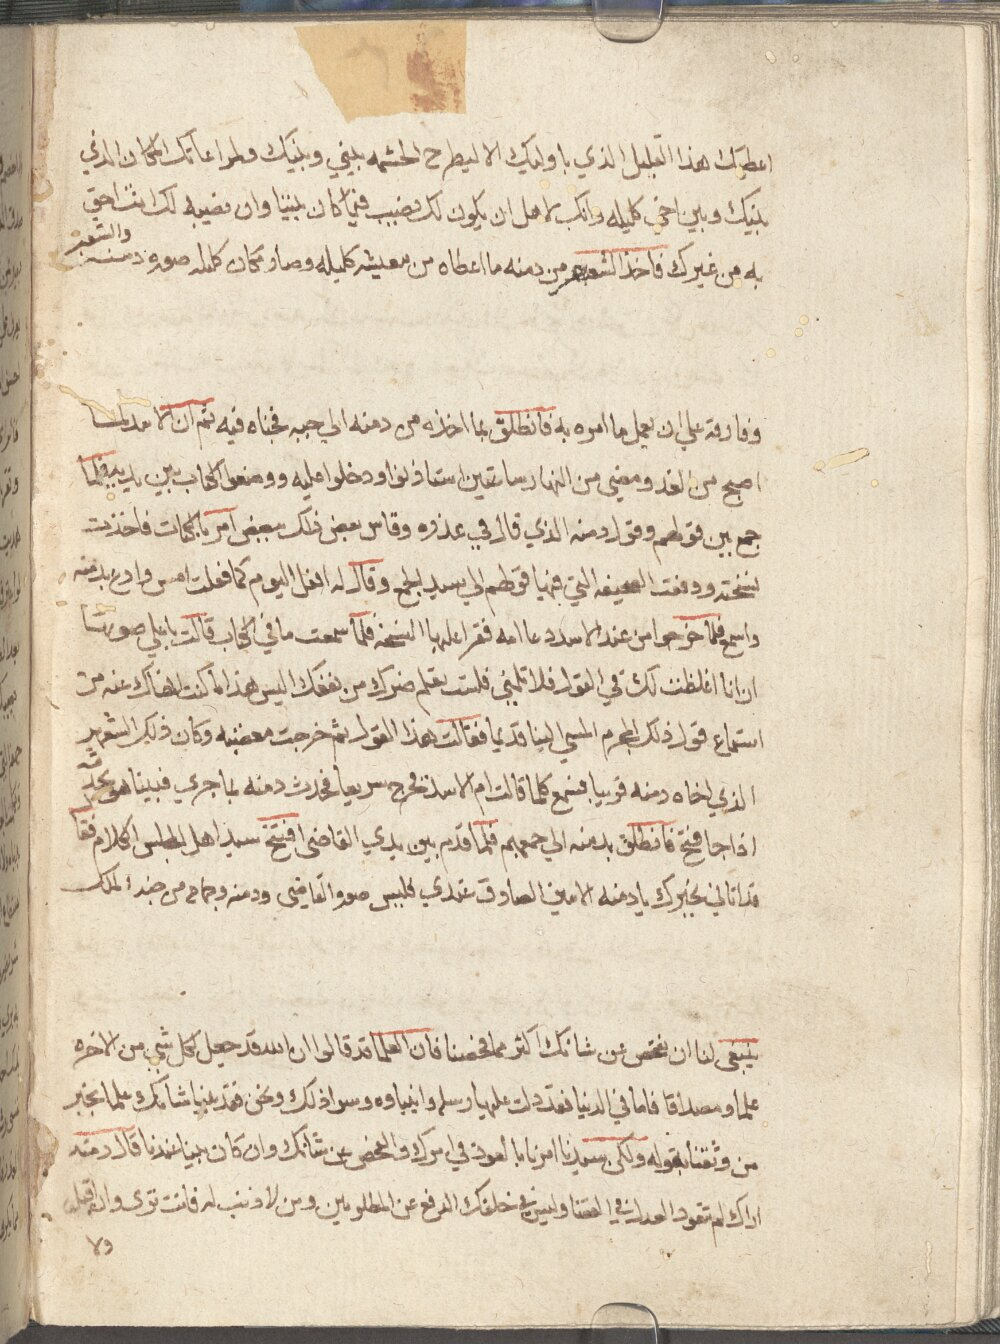 اعطيتك هذا القليل الذي باوليك الا ليطرح الحشمه بيني وبينك ولمراعاتك المكان الذي
بينك وبين اخي كليله وانك لاهل ان يكون لك نصيب فيما كان بيننا وان نصيبه لك انت احق
به من غيرك فاخذ الشعهر من دمنه ما اعطاه من معيشه كليله وصار مكان كليله صوره دمنه والشعهر
وفارقه علي ان يعمل ما امره به فانطلق بما اخذه من دمنه الي جبه فخباه فيه ثم ان الاسد لما
اصبح من الغد ومضي من النهار ساعتين استاذنوا ودخلوا عليه ووضعوا الكتاب بين يديه فلما
جمع بين قولهم وقول دمنه الذي قال في عذره وقاس بعض ذلك ببعض امر بالكتاب فاخذت
نسخته ودفعت الصحيفه التي فيها قولهم الي سيد الجمع وقال له افعل اليوم كما فعلت امس وادع بدمنه
واسمع فلما خرجوا من عند الاسد دعا امه فقرا عليها النسخه فلما سمعت ما في الكتاب قالت باعلي صوتها
ان انا اغلظت لك في القول فلا تلمني فلست تعلم ضرك من نفعك اليس هذا ما كنت انهاك عنه من
استماع قول ذلك المجرم المسي الينا قديما فقالت هذا القول ثم خرجت مغضبه وكان ذلك الشعهر
الذي اخاه دمنه قريبا فسمع كلما قالت ام الاسد فخرج سريعا فحدث دمنه بما جري فبينا هو يحدثه
اذا جا فيج فانطلق بدمنه الي جمعهم فلما قدم بين يدي القاضي افتتح سيد اهل المجلس الكلام فقا
قد اتاني بخبرك يا دمنه الامين الصادق عندي فليس صور القاضي ودمنه وجماع من جند الملك
ينبغي لنا ان نفحص عن شانك اكثر مما فحصنا فان العلما قد قالوا ان الله قد جعل لكل شي من الاخره
علما ومصداقا فاما في الدنيا فقد دلت عليها رسله وانبياوه وسوا ذلك ونحن فقد بنيا شانك علما بخبر
من وثقنا بقوله ولكن سيدنا امرنا بالعود في امرك والفحص عن شانك وان كان بينا عندنا قال دمنه
اراك لم تتعود العدل في القضا وليس في خلقك الدفع عن المظلومين ومن لا ذنب له فانت تري